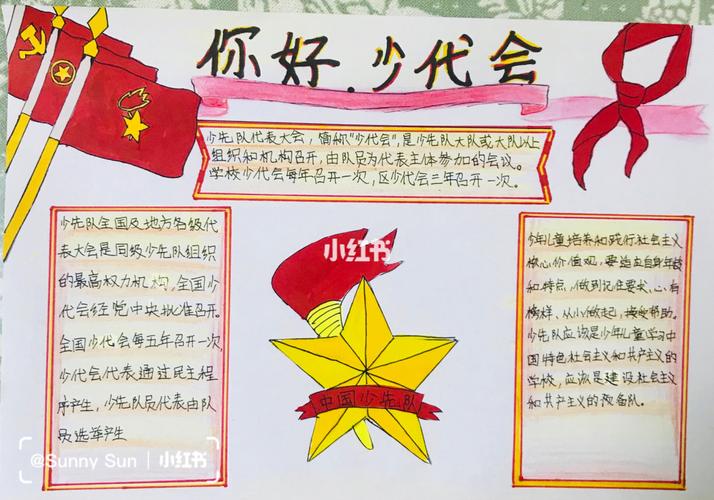 你好.少代会
少先队代表大会，简称"少代会"，是少先队大队或大队以上
组织和机构召开，由队员为代表主体参加的会议。
学校少代会每年召开一次，区少代会三年召开一次。
少先队全国及地方各级代
表大会是同级少先队组织
的最高权力机构。全国少
代会经党中央批准召开。
全国少代会每五年召开一次，
少代会代表通过民主程
序产生，少先队员代表由队
员选举产生
小红书
中国少先队
少年儿童培养和践行社会主义
核心价值观，要适应自身年龄
和特色，做到记住要求，心有
榜样、从小做起，接受帮助。
少先队应该是少年儿童学习中
国特色社会主义和共产主义的
学校，应该是建设社会主义
和共产主义的预备队。
@Sunny Sun 小红书